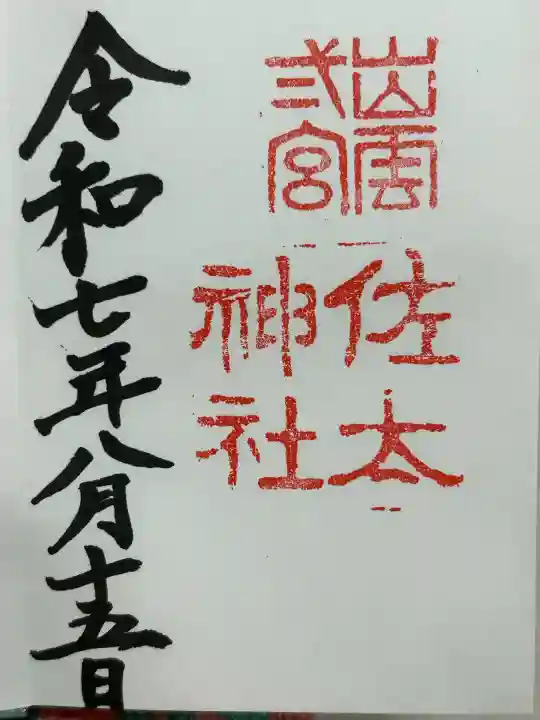 出雲
弎宮
佐太
神社
令和七年八月十五日